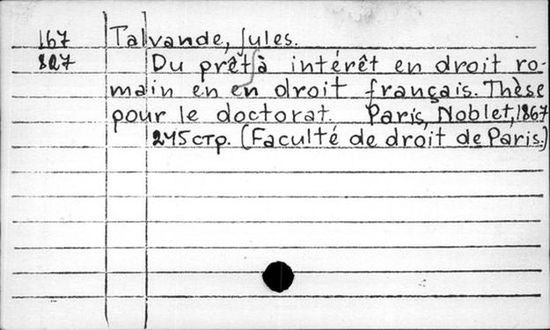 167 Talvande, Jules.
827 Du prêt à intérêt en droit ro-
main en en droit français. Thèse
pour le doctorat. Paris, Noblet, 1867
245 стр. (Faculté de droit de Paris.)